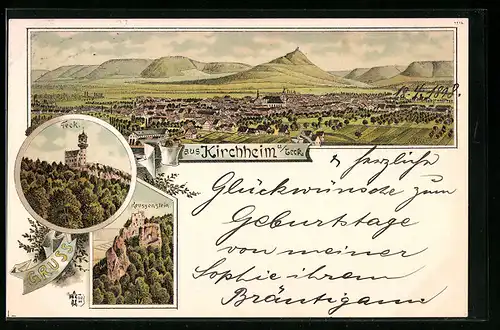 18.4.1898.
Teck.
GRUSS
aus Kirchheim u/Teck.
Reussenstein.
& herzliche
Glückwünsche zum
Geburtstage
von meiner
Sophie ihrem
Bräutigam